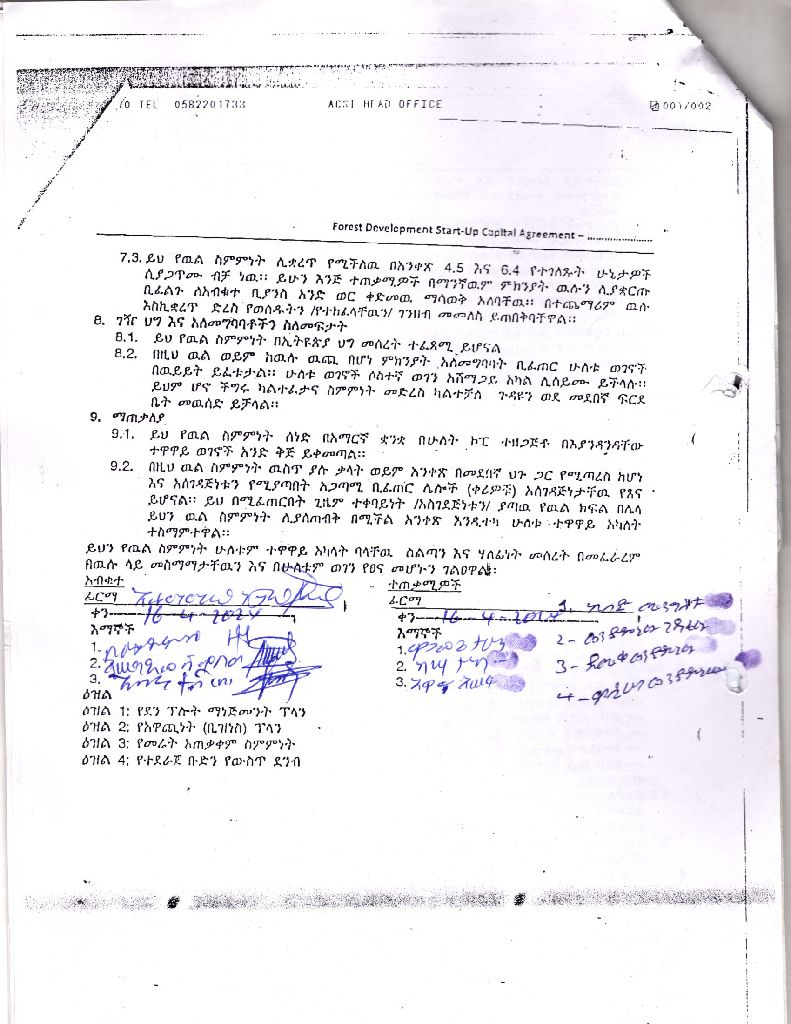 /0 TEL 0582201733 ACSI HEAD OFFICE 001/002
Forest Development Start-Up Capital Agreement – .....................
7.3. ይህ የዉል ስምምነት ሊቋረጥ የሚችለዉ በአንቀጽ 4.5 እና 6.4 የተገለጹት ሁኔታዎች
ሲያጋጥሙ ብቻ ነዉ። ይሁን እንጅ ተጠቃሚዎች በማንኛዉም ምክንያት ዉሉን ሲያቋርጡ
ቢፈልጉ ለአብቁተ ቢያንስ አንድ ወር ቀድመዉ ማሳወቅ አለባቸዉ። በተጨማሪም ዉሉ
እስኪቋረጥ ድረስ የወሰዱትን /የተከፈላቸዉን/ ገንዘብ መመለስ ይጠበቅባቸዋል።
8. ገዥ ህግ እና አለመግባባቶችን ስለመፍታት
8.1. ይህ የዉል ስምምነት በኢትዮጵያ ህግ መሰረት ተፈጻሚ ይሆናል
8.2. በዚህ ዉል ወይም ከዉሉ ዉጪ በሆነ ምክንያት አለመግባባት ቢፈጠር ሁለቱ ወገኖች
በዉይይት ይፈቱታል። ሁለቱ ወገኖች ሶስተኛ ወገን አሸማጋይ አካል ሊሰይሙ ይችላሉ።
ይህም ሆኖ ችግሩ ካልተፈታና ስምምነት መድረስ ካልተቻለ ጉዳዩን ወደ መደበኛ ፍርድ
ቤት መዉሰድ ይቻላል።
9. ማጠቃለያ
9.1. ይህ የዉል ስምምነት ሰነድ በአማርኛ ቋንቋ በሁለት ኮፒ ተዘጋጅቶ በእያንዳንዳቸው
ተዋዋይ ወገኖች አንድ ቅጅ ይቀመጣል።
9.2. በዚህ ዉል ስምምነት ዉስጥ ያሉ ቃላት ወይም አንቀጽ በመደበኛ ህጉ ጋር የሚጣረስ ከሆነ
እና አስገዳጅነቱን የሚያጣበት አጋጣሚ ቢፈጠር ሌሎች (ቀሪዎች) አስገዳጅነታቸዉ የፀና
ይሆናል። ይህ በሚፈጠርበት ጊዜም ተቀባይነት /አስገዳጅነቱን/ ያጣዉ የዉል ክፍል በሌላ
ይህን ዉል ስምምነት ሊያለጠብቅ በሚችል አንቀጽ እንዲተካ ሁለቱ ተዋዋይ አካላት
ተስማምተዋል።
ይህን የዉል ስምምነት ሁለቱም ተዋዋይ አካላት ባላቸዉ ስልጣን እና ሃላፊነት መሰረት በመፈራረም
በዉሉ ላይ መስማማታቸዉን እና በሁለቱም ወገን የፀና መሆኑን ገልፀዋል፡
አብቁተ
ፊርማ
ቀን 16-4-2024
እማኞች
1.
2.
3.
ተጠቃሚዎች
ፊርማ
ቀን 16-4-2024
እማኞች
1.
2.
3.
1.
2 -
3 -
4 -
ዕዝል
ዕዝል 1: የደን ፕሎት ማኔጅመንት ፕላን
ዕዝል 2: የአዋጪነት (ቢዝነስ) ፕላን
ዕዝል 3: የመሬት አጠቃቀም ስምምነት
ዕዝል 4: የተደራጀ ቡድን የውስጥ ደንብ